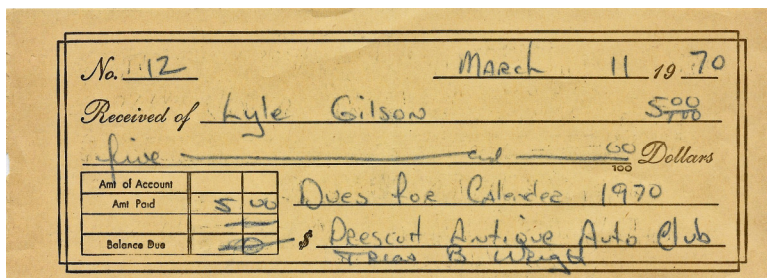 No. 12 March 11 19 70
Received of Lyle Gilson 5 00/100
five and 00/100 Dollars
Amt of Account
Amt Paid 5 00 Dues for Calendee 1970
Balance Due 0 $ Prescott Antique Auto Club
B Wright